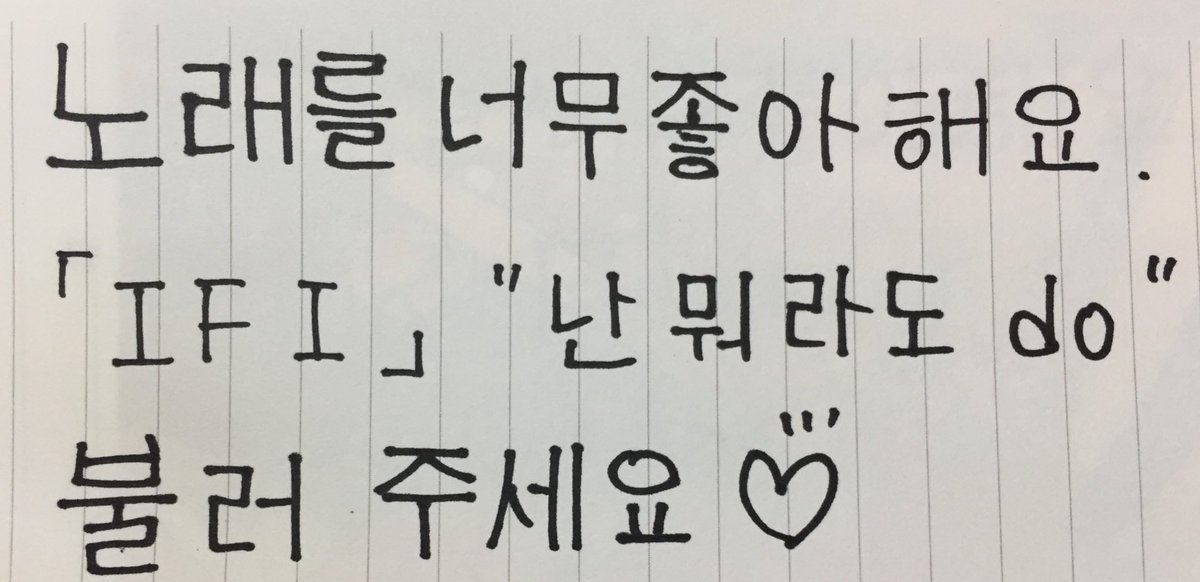 노래를 너무좋아해요.
「IF I」 "난 뭐라도 do"
불러 주세요♡